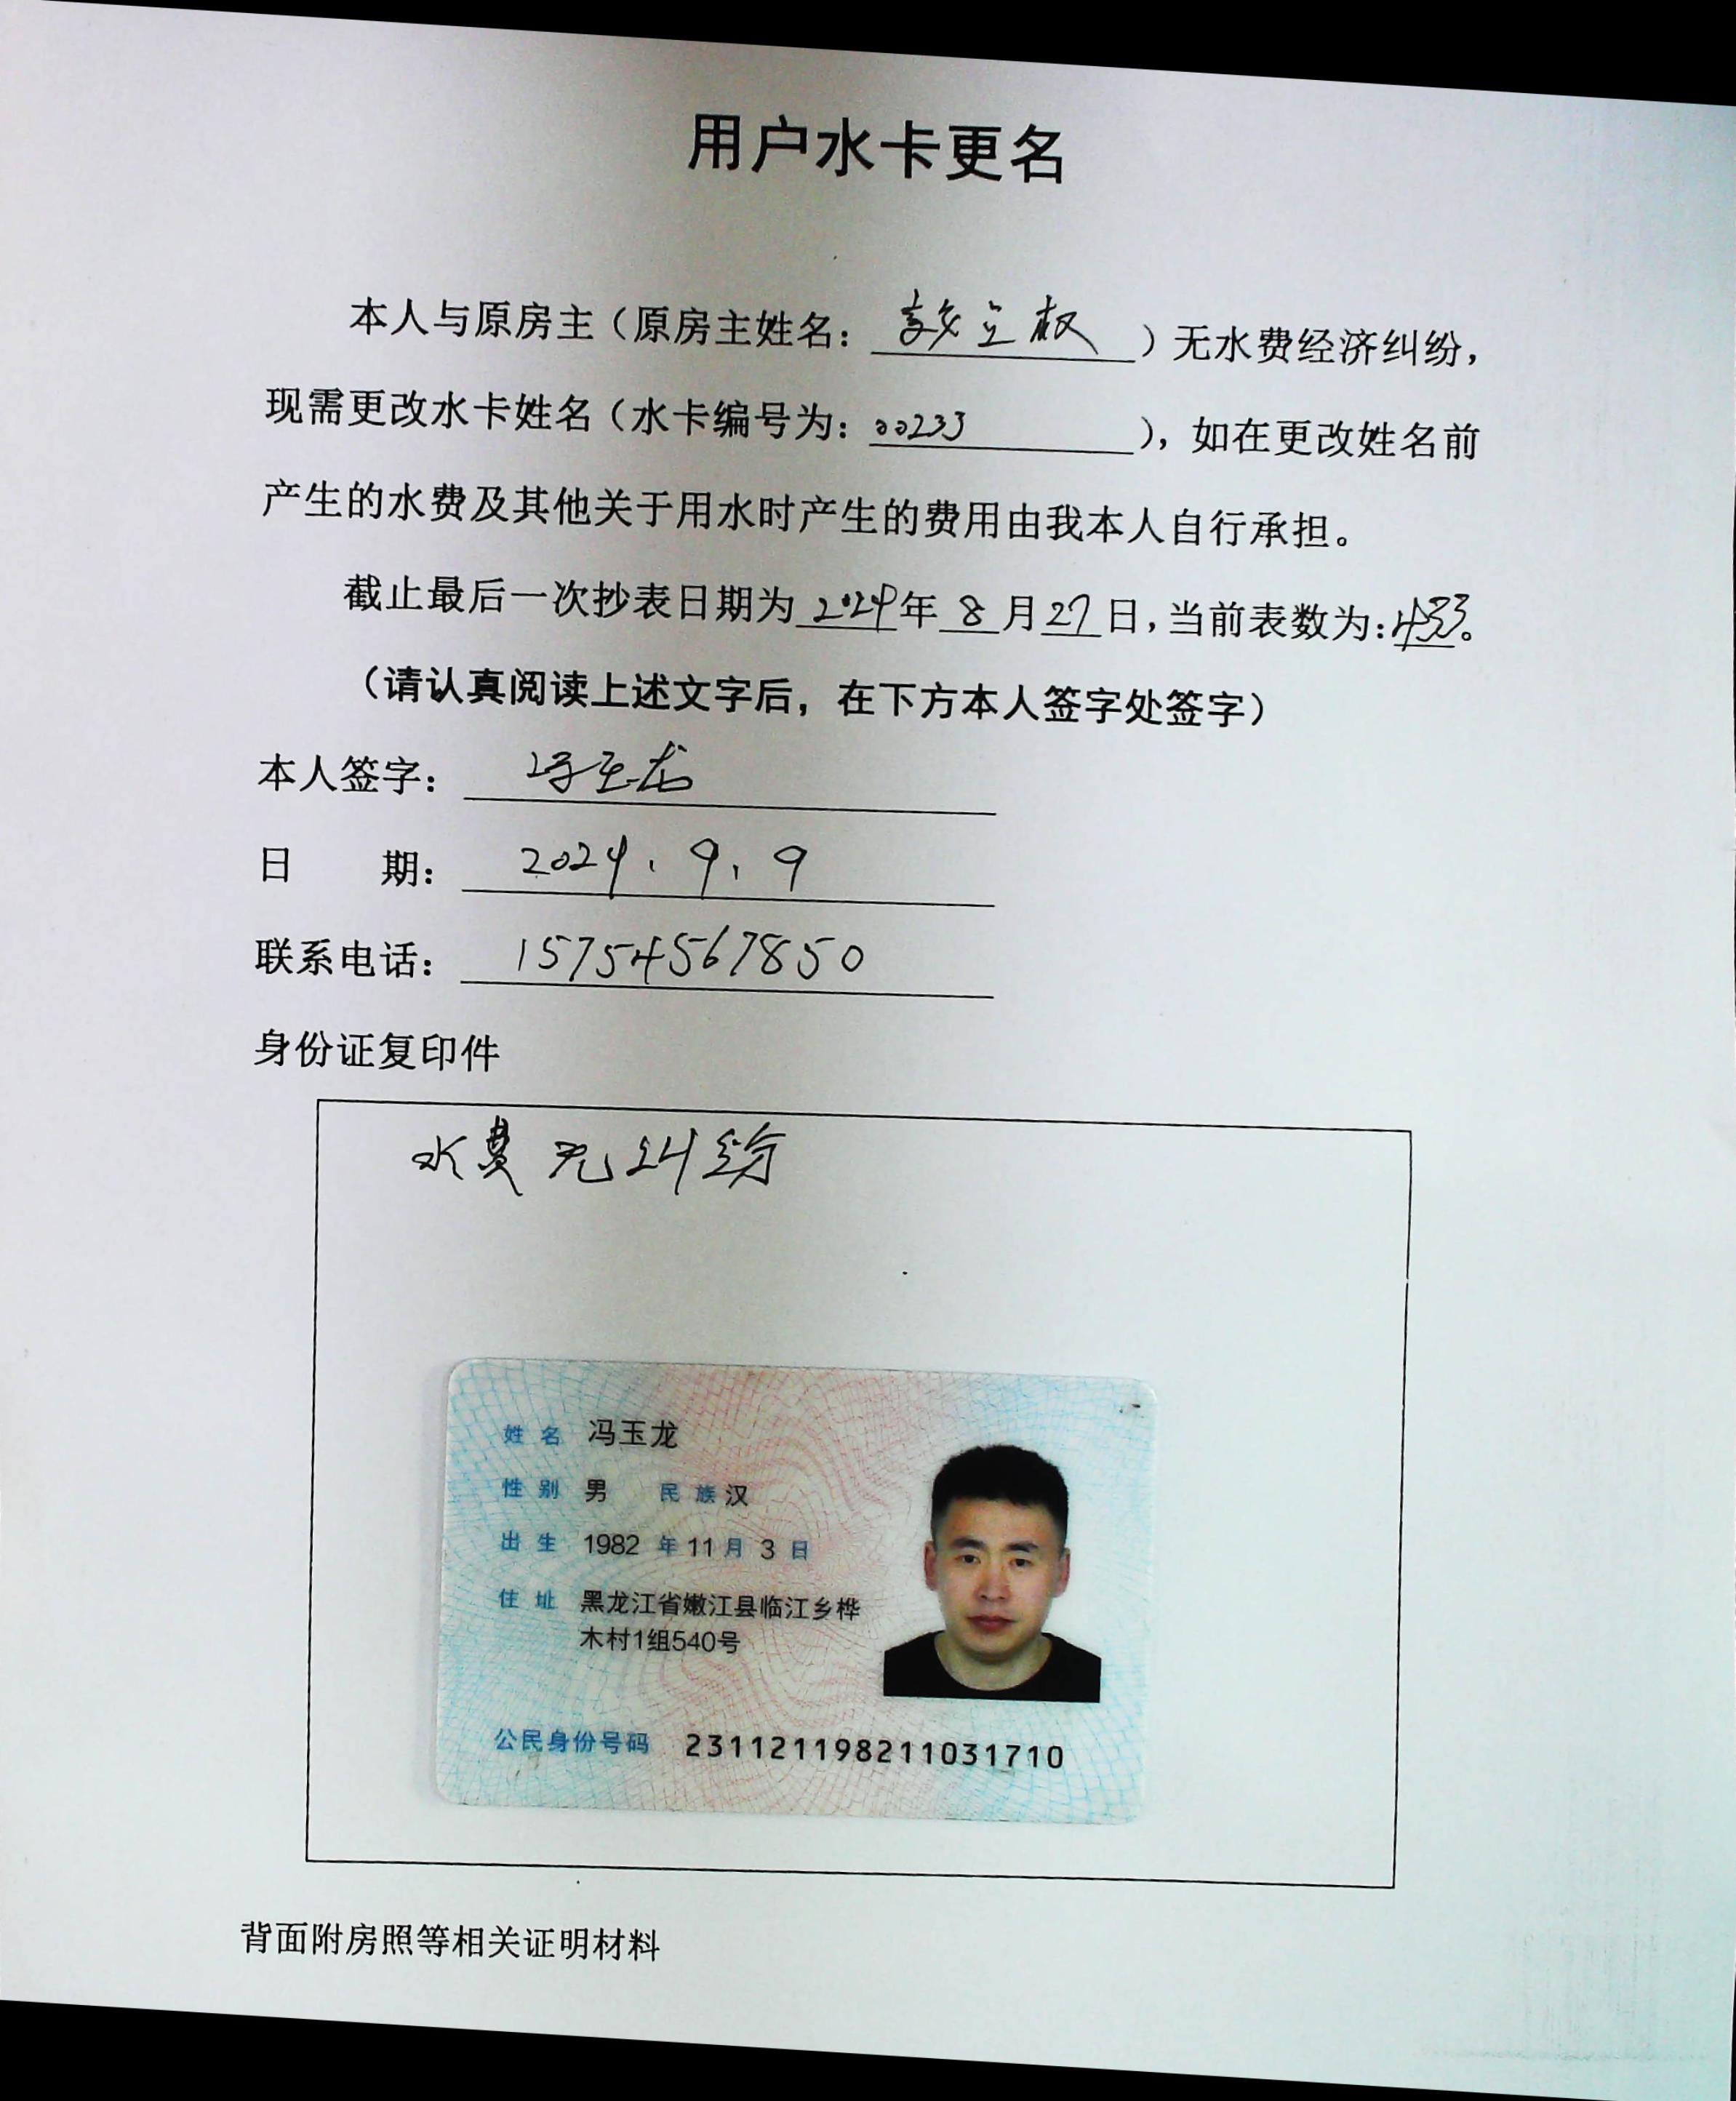 用户水卡更名
本人与原房主（原房主姓名：立权）无水费经济纠纷，
现需更改水卡姓名（水卡编号为：00233），如在更改姓名前
产生的水费及其他关于用水时产生的费用由我本人自行承担。
截止最后一次抄表日期为2024年8月27日，当前表数为：433。
（请认真阅读上述文字后，在下方本人签字处签字）
本人签字：冯玉龙
日 期：2024.9.9
联系电话：15754567850
身份证复印件
水费无纠纷
姓名 冯玉龙
性别 男 民族 汉
出生 1982 年 11 月 3 日
住址 黑龙江省嫩江县临江乡桦
木村1组540号
公民身份号码 231121198211031710
背面附房照等相关证明材料